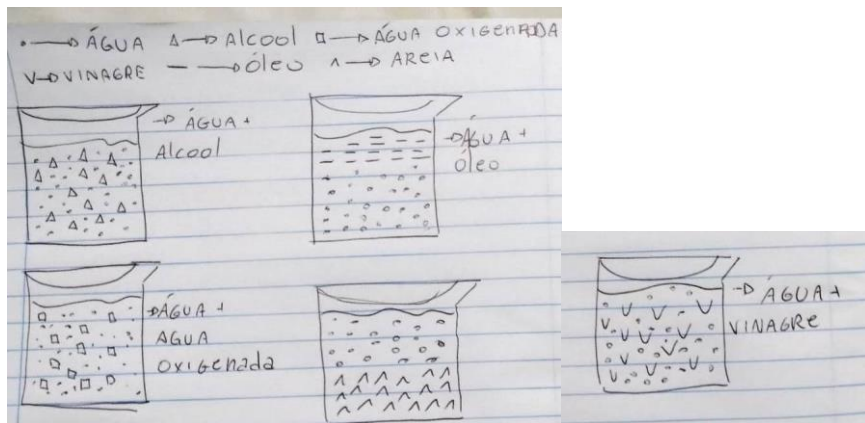 • → ÁGUA △ → Alcool □ → ÁGUA OXIGENADA
V → VINAGRE — → Óleo ʌ → AREIA
→ ÁGUA +
Alcool
→ ÁGUA +
Óleo
→ ÁGUA +
AGUA
OXIGENADA
→ ÁGUA +
VINAGRE